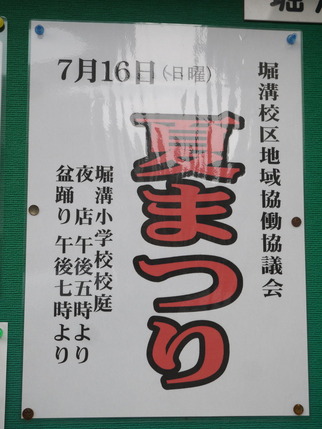 7月16日(日曜)
堀溝校区地域協働協議会
夏まつり
堀溝小学校校庭
夜店 午後五時より
盆踊り 午後七時より
堀